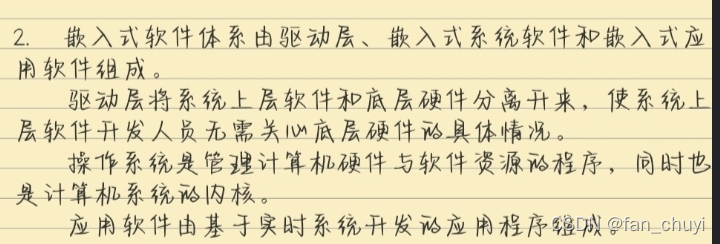 2. 嵌入式软件体系由驱动层、嵌入式系统软件和嵌入式应
用软件组成。
驱动层将系统上层软件和底层硬件分离开来，使系统上
层软件开发人员无需关心底层硬件的具体情况。
操作系统是管理计算机硬件与软件资源的程序，同时也
是计算机系统的内核。
应用软件由基于实时系统开发的应用程序组成。
CSDN @fan_chuyi